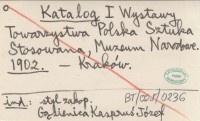 Katalog I Wystawy
Towarzystwa Polska Sztuka
Stosowana, Muzeum Narodowe.
1902. – Kraków.
ind.: styl zakop.
BT/001/0236
Gąsienica Kasprus Józef